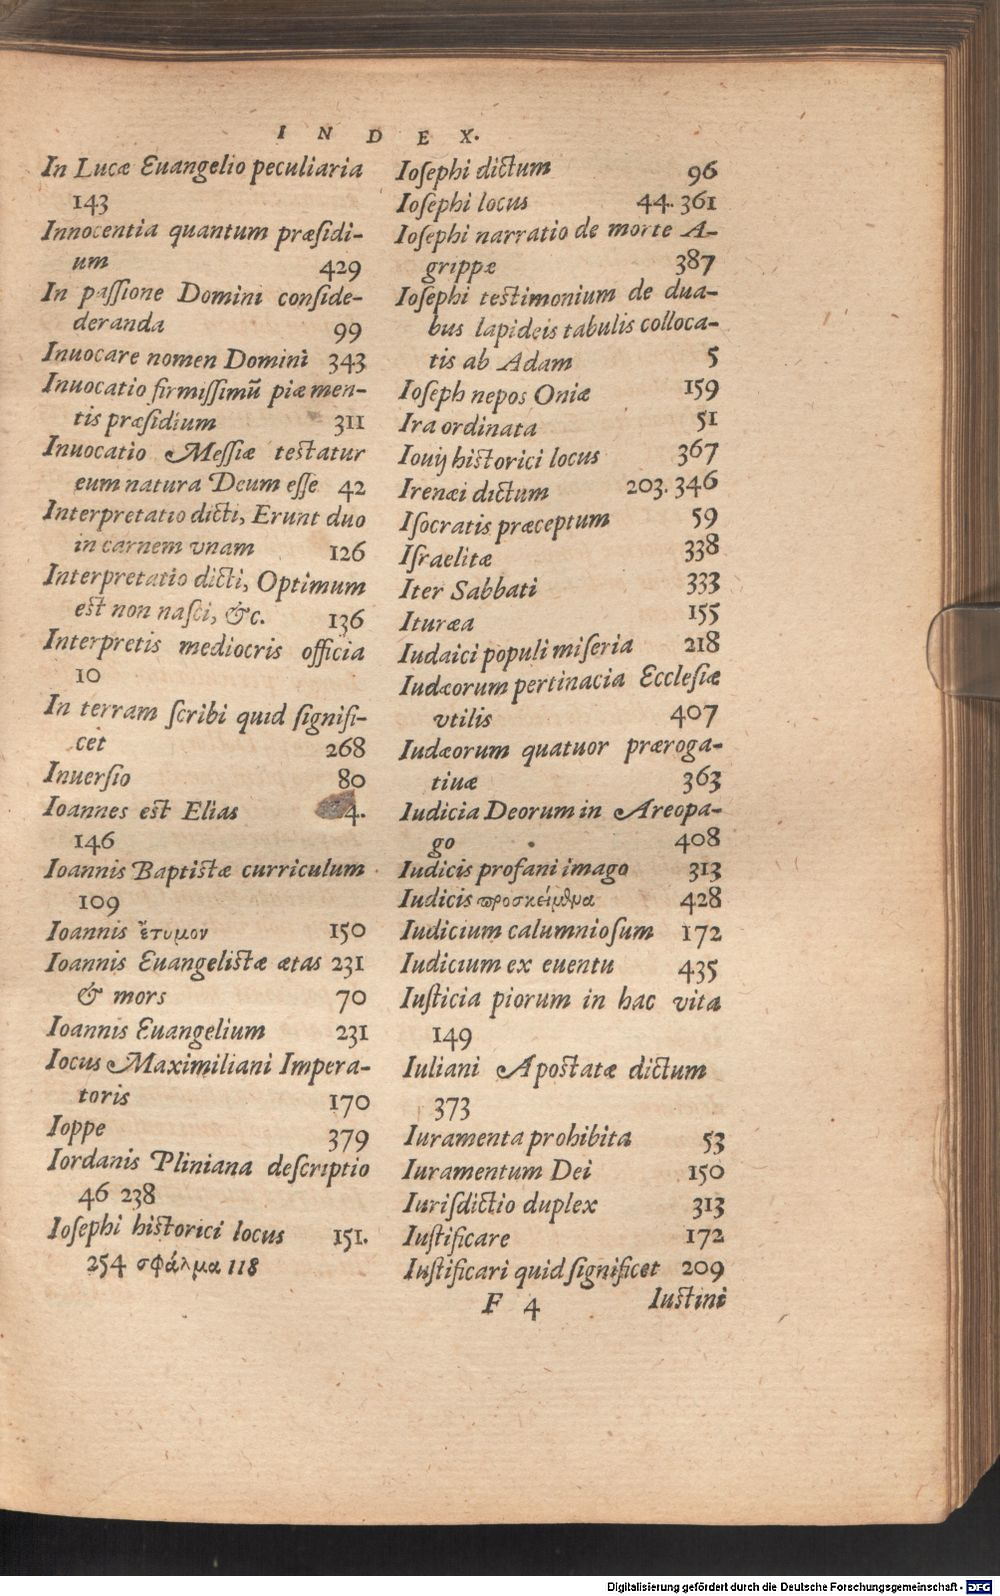 INDEX.
In Lucæ Euangelio peculiaria
143
Innocentia quantum præſidi-
um 429
In paſſione Domini conſide-
deranda 99
Inuocare nomen Domini 343
Inuocatio firmiſſimū piæ men-
tis præſidium 311
Inuocatio Meſſiæ testatur
eum natura Deum eſſe 42
Interpretatio dicti, Erunt duo
in carnem vnam 126
Interpretatio dicti, Optimum
est non naſci, &c. 136
Interpretis mediocris officia
10
In terram ſcribi quid ſignifi-
cet 268
Inuerſio 80
Ioannes est Elias 4.
146
Ioannis Baptistæ curriculum
109
Ioannis ἔτυμον 150
Ioannis Euangelistæ ætas 231
& mors 70
Ioannis Euangelium 231
Iocus Maximiliani Impera-
toris 170
Ioppe 379
Iordanis Pliniana deſcriptio
46 238
Ioſephi historici locus 151.
254 σφάλμα 118
Ioſephi dictum 96
Ioſephi locus 44. 361
Ioſephi narratio de morte A-
grippæ 387
Ioſephi testimonium de dua-
bus lapideis tabulis colloca-
tis ab Adam 5
Ioſeph nepos Oniæ 159
Ira ordinata 51
Iouij historici locus 367
Irenæi dictum 203. 346
Iſocratis præceptum 59
Iſraelitæ 338
Iter Sabbati 333
Ituræa 155
Iudaici populi miſeria 218
Iudæorum pertinacia Eccleſiæ
vtilis 407
Iudæorum quatuor præroga-
tiuæ 363
Iudicia Deorum in Areopa-
go 408
Iudicis profani imago 313
Iudicis 428
Iudicium calumnioſum 172
Iudicium ex euentu 435
Iuſticia piorum in hac vita
149
Iuliani Apostatæ dictum
373
Iuramenta prohibita 53
Iuramentum Dei 150
Iuriſdictio duplex 313
Iuſtificare 172
Iuſtificari quid ſignificet 209
F 4 Iustini
Digitalisierung gefördert durch die Deutsche Forschungsgemeinschaft - DFG